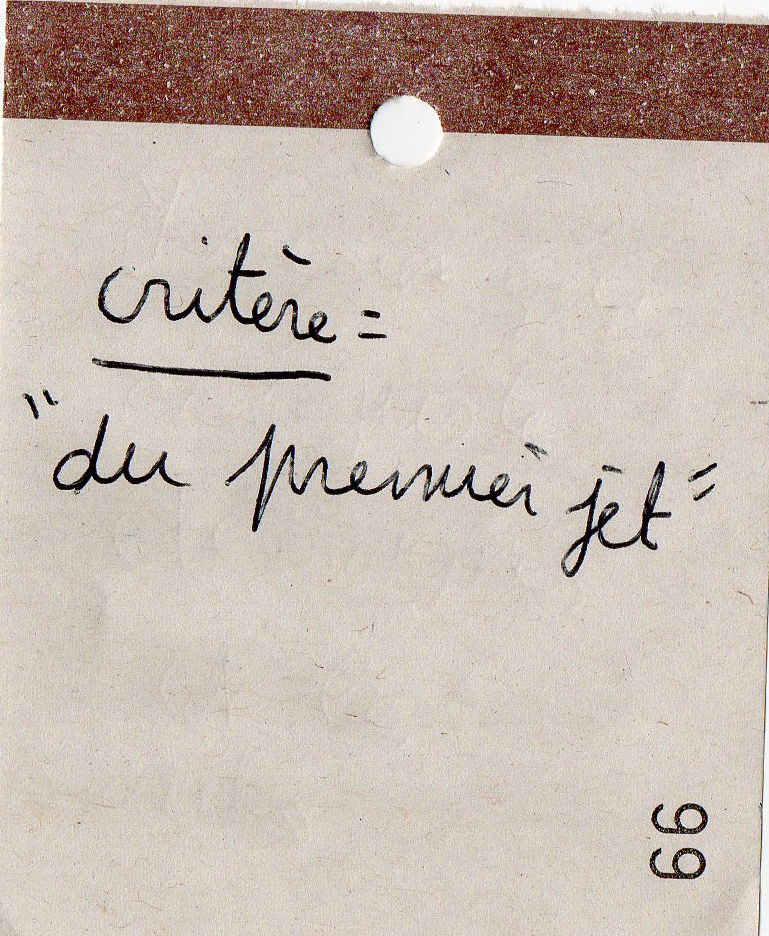 critère =
"du premier jet"
99